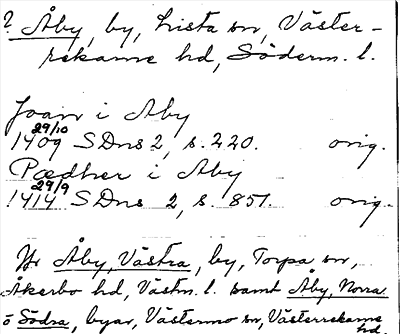 ? Åby, by, Lista sn, Väster-
rekarne hd, Söderm. l.
Joan i Aby
1409 29/10 SDns 2, s. 220. orig.
Pædher i Aby
1414 29/9 SDns 2, s. 851. orig.
Jfr Åby, Västra, by, Torpa sn,
Åkerbo hd, Västm. l. samt Åby, Norra
o Södra, byar, Västermo sn, Västerrekarne
hd.